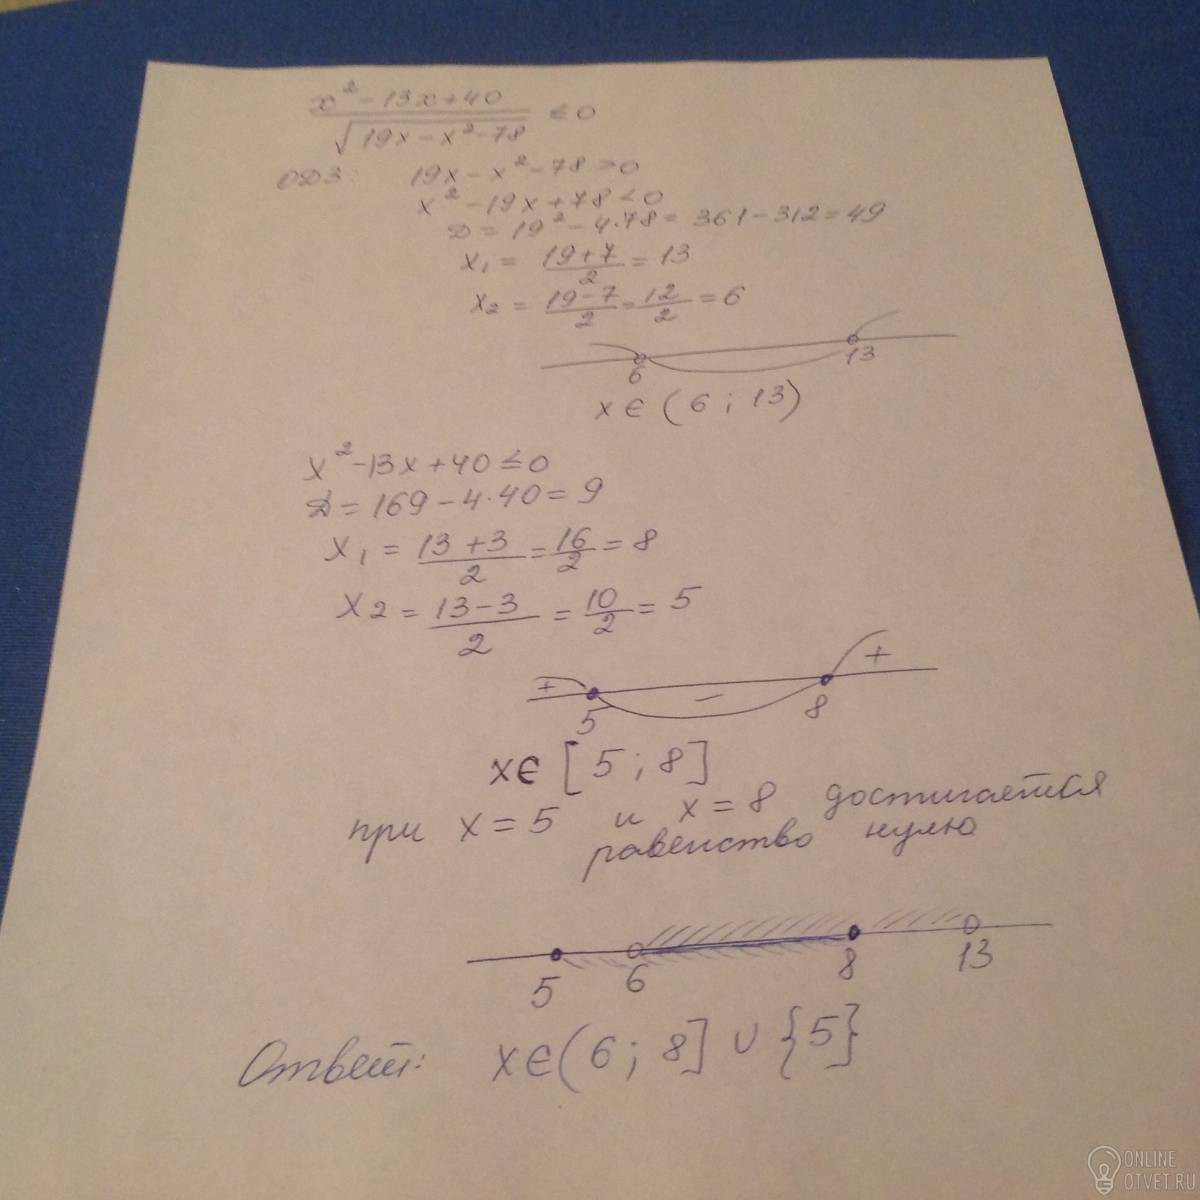 x² - 13x + 40
√19x - x² - 78 ≤ 0
ОДЗ: 19x - x² - 78 > 0
x² - 19x + 78 < 0
Д = 19² - 4·78 = 361 - 312 = 49
x₁ = 19+7/2 = 13
x₂ = 19-7/2 = 12/2 = 6
6 13
x ∈ (6 ; 13)
x² - 13x + 40 ≤ 0
Д = 169 - 4·40 = 9
x₁ = 13+3/2 = 16/2 = 8
x₂ = 13-3/2 = 10/2 = 5
+ − +
5 8
x ∈ [5 ; 8]
при x = 5 и x = 8 достигается
равенство нулю
5 6 8 13
Ответ: x ∈ (6 ; 8] ∪ {5}
ONLINE
OTVET.RU